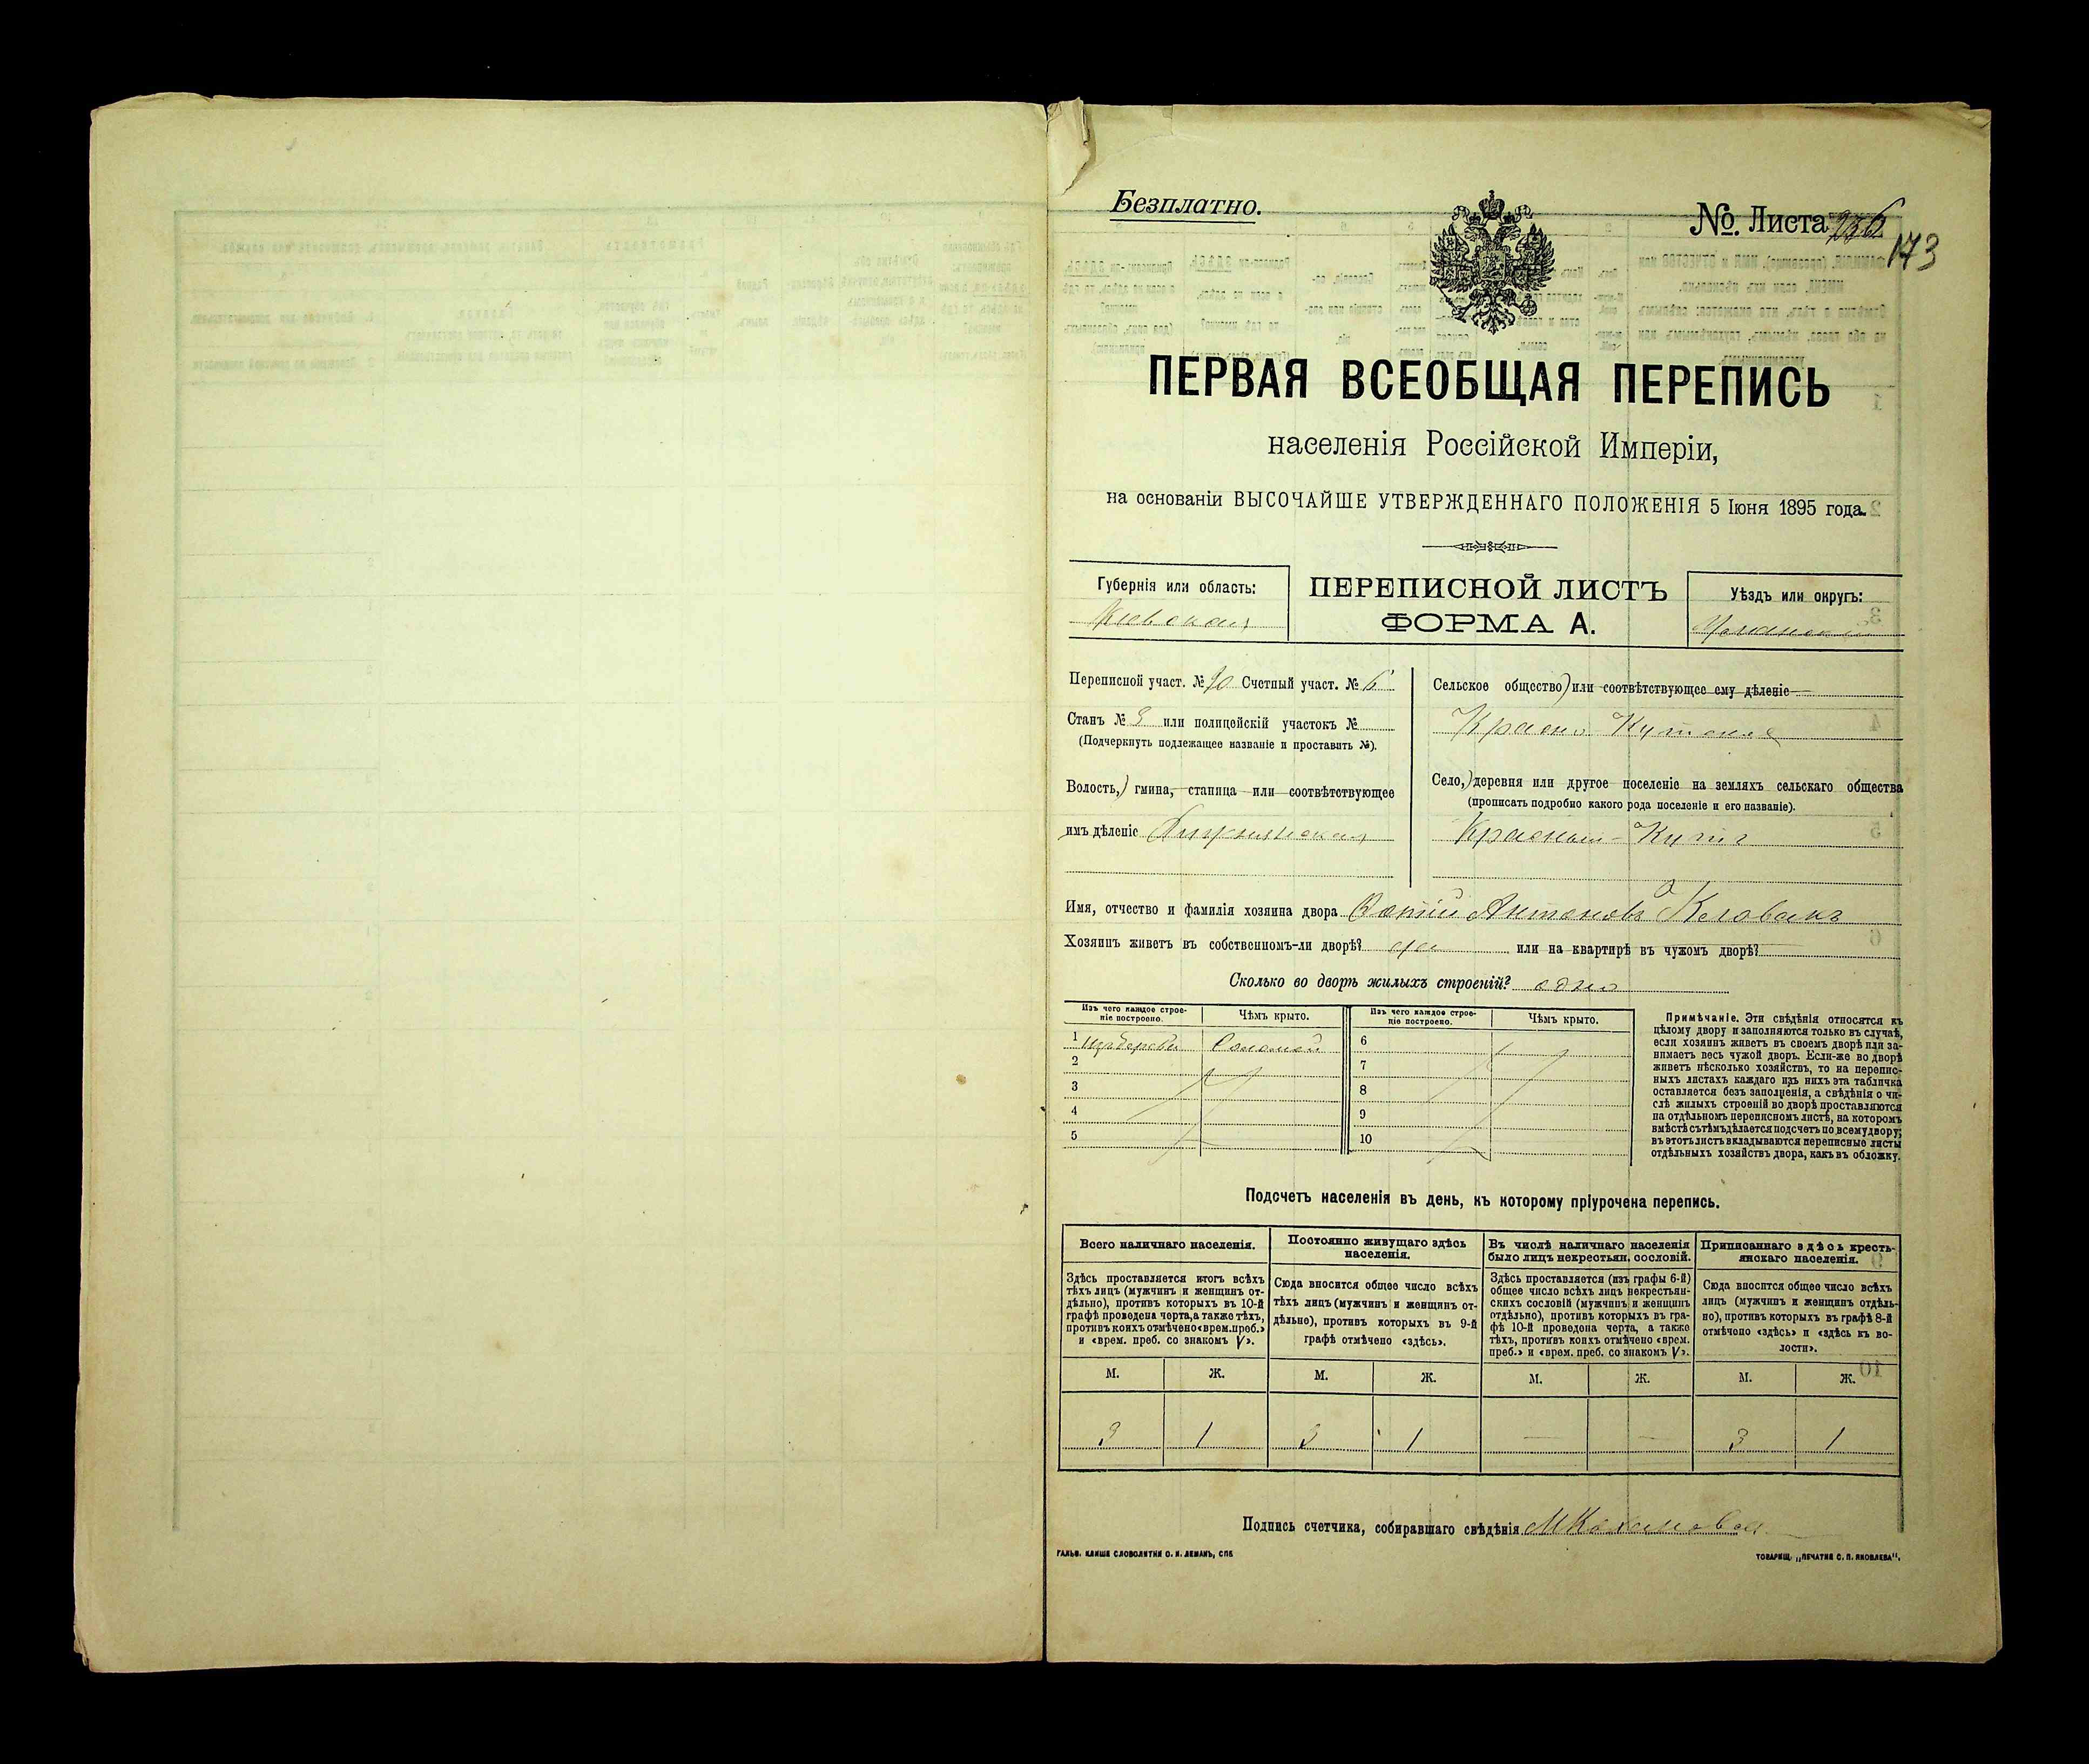 Безплатно.
№. Листа
173
ПЕРВАЯ ВСЕОБЩАЯ ПЕРЕПИСЬ
населенія Россійской Имперіи,
на основаніи ВЫСОЧАЙШЕ УТВЕРЖДЕННАГО ПОЛОЖЕНІЯ 5 Іюня 1895 года.
Губернія или область:
Кіевская
ПЕРЕПИСНОЙ ЛИСТЪ
ФОРМА А.
Уѣздъ или округъ:
Уманскій
Переписной участ. № 10 Счетный участ. № 6
Станъ № 3 или полицейскій участокъ №
(Подчеркнуть подлежащее названіе и проставить №).
Волость, гмина, станица или соотвѣтствующее
имъ дѣленіе
Сельское общество или соотвѣтствующее ему дѣленіе
Красно Кутское
Село, деревня или другое поселеніе на земляхъ сельскаго общества
(прописать подробно какого рода поселеніе и его названіе).
Красный-Кутъ
Имя, отчество и фамилія хозяина двора Антоновъ
Хозяинъ живетъ въ собственномъ-ли дворѣ? да или на квартирѣ въ чужомъ дворѣ?
Сколько во дворѣ жилыхъ строеній? одно
Изъ чего каждое строеніе построено.
Чѣмъ крыто.
Изъ чего каждое строеніе построено.
Чѣмъ крыто.
1 Соломой
2
3
4
5
6
7
8
9
10
Примѣчаніе. Эти свѣдѣнія относятся къ
цѣлому двору и заполняются только въ случаѣ,
если хозяинъ живетъ въ своемъ дворѣ или за-
нимаетъ весь чужой дворъ. Если-же во дворѣ
живетъ нѣсколько хозяйствъ, то на перепис-
ныхъ листахъ каждаго изъ нихъ эта табличка
оставляется безъ заполненія, а свѣдѣнія о чи-
слѣ жилыхъ строеній во дворѣ проставляются
на отдѣльномъ переписномъ листѣ, на которомъ
вмѣстѣ съ тѣмъ дѣлается подсчетъ по всему двору;
въ этотъ листъ вкладываются переписные листы
отдѣльныхъ хозяйствъ двора, какъ въ обложку.
Подсчетъ населенія въ день, къ которому пріурочена перепись.
Всего наличнаго населенія.
Здѣсь проставляется итогъ всѣхъ
тѣхъ лицъ (мужчинъ и женщинъ от-
дѣльно), противъ которыхъ въ 10-й
графѣ проведена черта, а также тѣхъ,
противъ коихъ отмѣчено «врем. преб.»
и «врем. преб. со знакомъ V».
М. Ж.
3 1
Постоянно живущаго здѣсь
населенія.
Сюда вносится общее число всѣхъ
тѣхъ лицъ (мужчинъ и женщинъ от-
дѣльно), противъ которыхъ въ 9-й
графѣ отмѣчено «здѣсь».
М. Ж.
3 1
Въ числѣ наличнаго населенія
было лицъ некрестьян. сословій.
Здѣсь проставляется (изъ графы 6-й)
общее число всѣхъ лицъ некрестьян-
скихъ сословій (мужчинъ и женщинъ
отдѣльно), противъ которыхъ въ гра-
фѣ 10-й проведена черта, а также
тѣхъ, противъ коихъ отмѣчено «врем.
преб.» и «врем. преб. со знакомъ V».
М. Ж.
— —
Приписаннаго здѣсь кресть-
янскаго населенія.
Сюда вносится общее число всѣхъ
лицъ (мужчинъ и женщинъ отдѣль-
но), противъ которыхъ въ графѣ 8-й
отмѣчено «здѣсь» и «здѣсь къ во-
лости».
М. Ж.
3 1
Подпись счетчика, собиравшаго свѣдѣнія
ГАЛЬВ. КЛИШЕ СЛОВОЛИТНИ О. И. ЛЕМАНЪ, СПБ
ТОВАРИЩ. „ПЕЧАТНЯ С. П. ЯКОВЛЕВА".